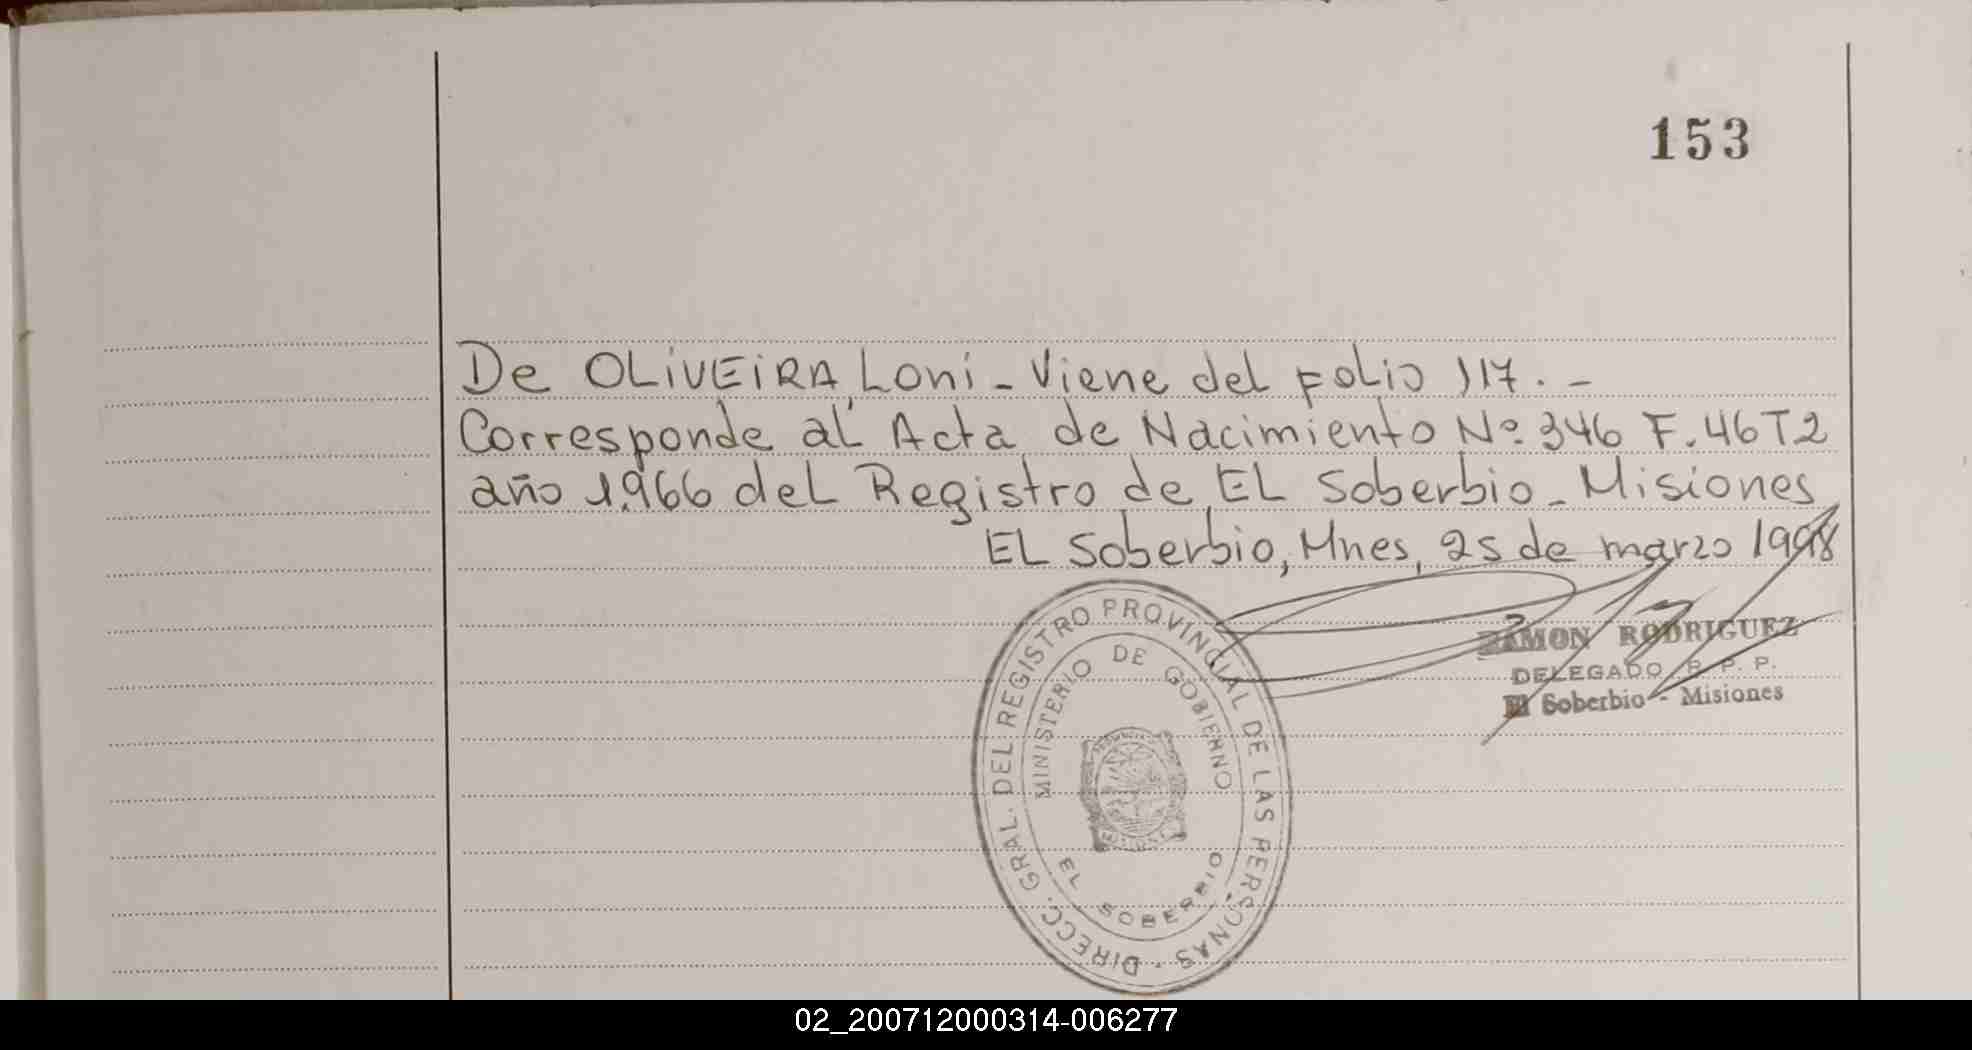 153
De OLIVEIRA, Loni - Viene del folio 117. -
Corresponde al Acta de Nacimiento Nº 346 F. 46 T2
año 1.966 del Registro de EL Soberbio - Misiones
EL Soberbio, Mnes, 25 de marzo 1998
RAMON RODRIGUEZ
DELEGADO R. P. P.
El Soberbio - Misiones
DIRECC. GRAL. DEL REGISTRO PROVINCIAL DE LAS PERSONAS -
MINISTERIO DE GOBIERNO
EL SOBERBIO
02_200712000314-006277